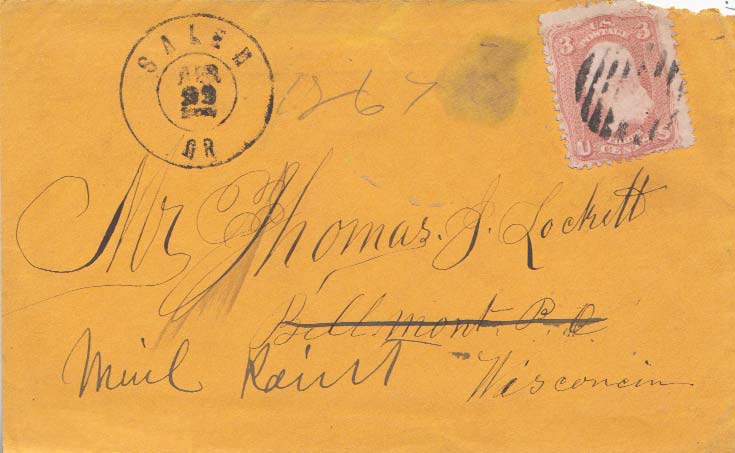 SALEM
APR
22
OR
1867
3 U.S. POSTAGE 3
U S
CENTS
Mr Thomas. J. Lockett
Bellmont. P. O
Minl Point
Wisconcin